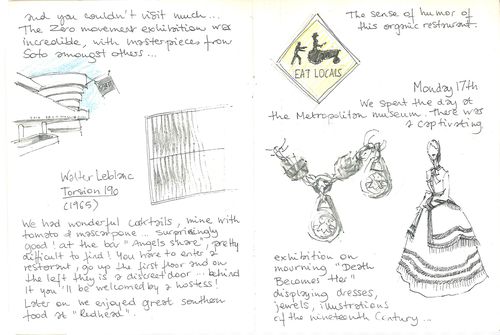 and you couldn't visit much...
The Zero movement exhibition was
incredible, with masterpieces from
Soto amongst others...
Walter Leblanc
Torsion 190
(1965)
We had wonderful coktails, mine with
tomato & mascarpone... surprisingly
good! at the bar "Angels share", pretty
difficult to find! You have to enter a
restorant, go up the first floor and on
the left they is a discreet door... behind
it you'll be welcomed by a hostess!
Later on we enjoyed great southern
food at "Redhead".
The sense of humor of
this organic restaurant.
EAT LOCALS
Monday 17th
We spent the day at
the Metropolitan museum. There was
a captivating
exhibition on
mourning "Death
Becomes Her"
displaying dresses,
jewels, illustrations
of the nineteenth Century...